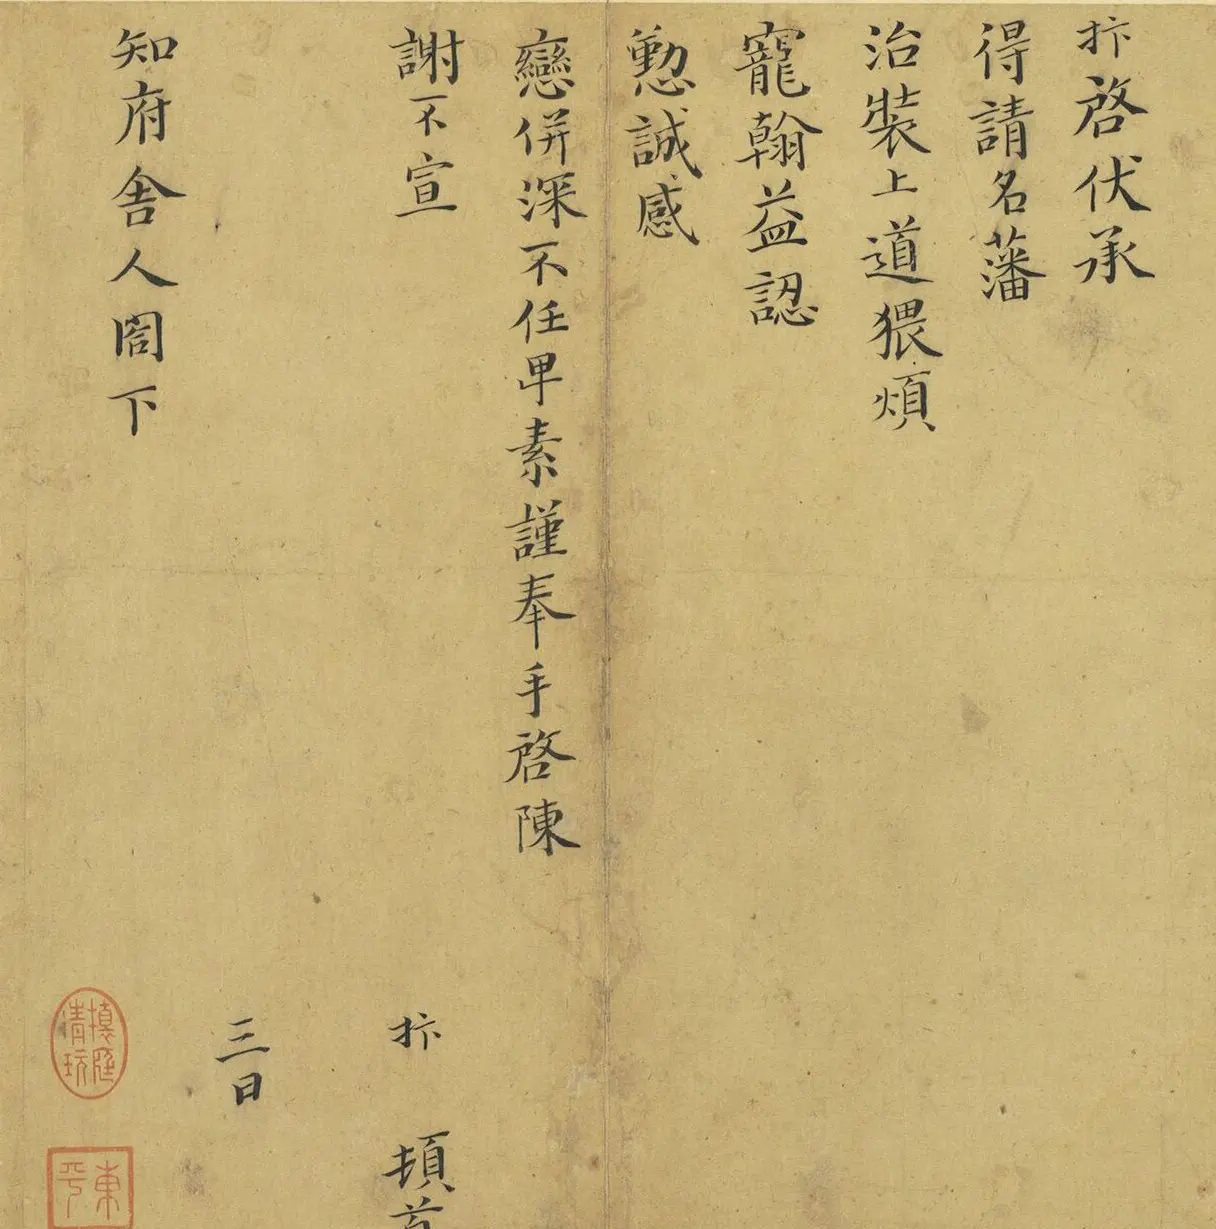 抃啓伏承
得請名藩
治裝上道猥煩
寵翰益認
懃誠感
戀併深不任早素謹奉手啓陳
謝不宣
抃 頓首
三日
知府舍人閤下
清玩
東平